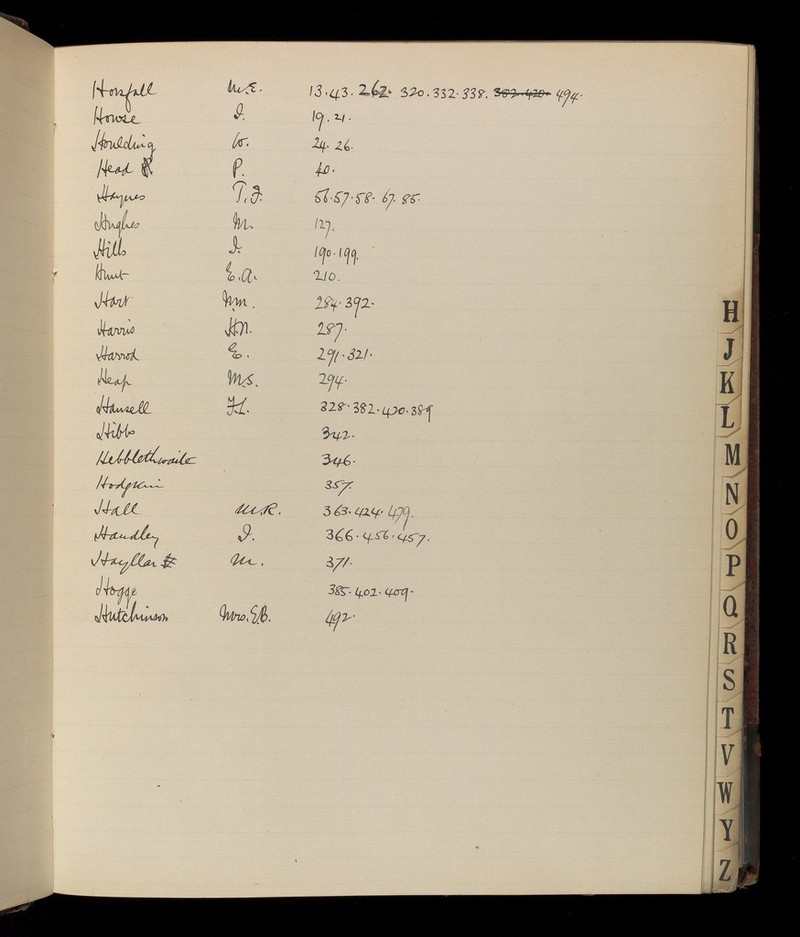 Horsfall M.E. 13. 43. 262. 320. 332. 338. 382. 420. 494.
Howse I. 19. 21.
Houlding G. 24. 26.
Head P. 40.
Haynes T.J. 56. 57. 58. 67. 85.
Hughes M. 127.
Hills I. 190. 199.
Hunt E.A. 210.
Hart Wm. 284. 392.
Harris H.N. 287.
Harrod E. 291. 321.
Heap M.S. 294.
Hansell F.L. 328. 382. 420. 389
Hibbs 342.
Hebblethwaite 346.
Hodgkin 357.
Hall M.R. 363. 424. 479.
Handley I. 366. 456. 457.
Hayllar M. 371.
Hogge 385. 402. 409.
Hutchinson Mrs. E.B. 492.
H
J
K
L
M
N
O
P
Q
R
S
T
V
W
Y
Z